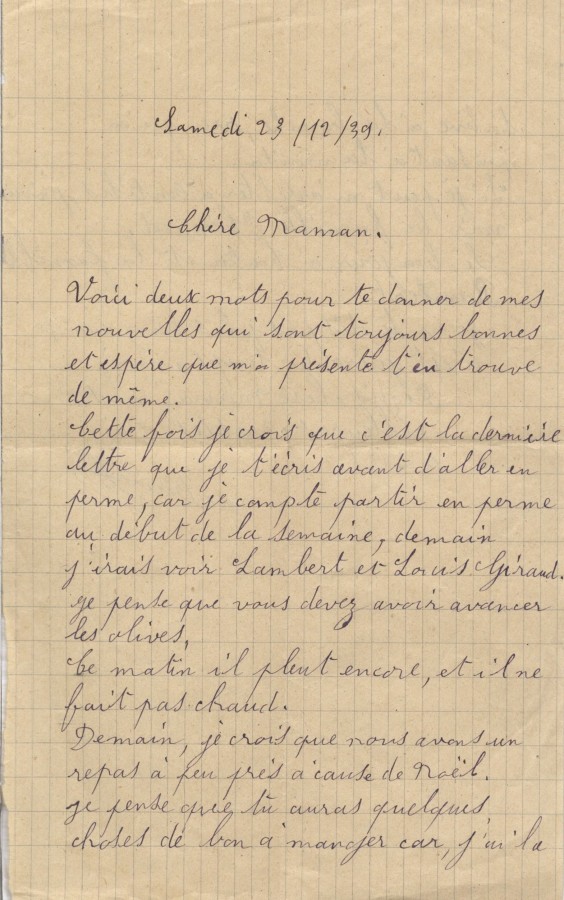 Samedi 23/12/39.
Chère Maman.
Voici deux mots pour te donner de mes
nouvelles qui sont toujours bonnes
et espère que m'a présente t'en trouve
de même.
Cette fois je crois que c'est la dernière
lettre que je t'écris avant d'aller en
perme, car je compte partir en perme
au début de la semaine, demain
j'irais voir Lambert et Louis Giraud.
je pense que vous devez avoir avancer
les olives,
Ce matin il pleut encore, et il ne
fait pas chaud.
Demain, je crois que nous avons un
repas à peu près a cause de Noël.
je pense que tu auras quelques
choses de bon a manger car, j'ai la